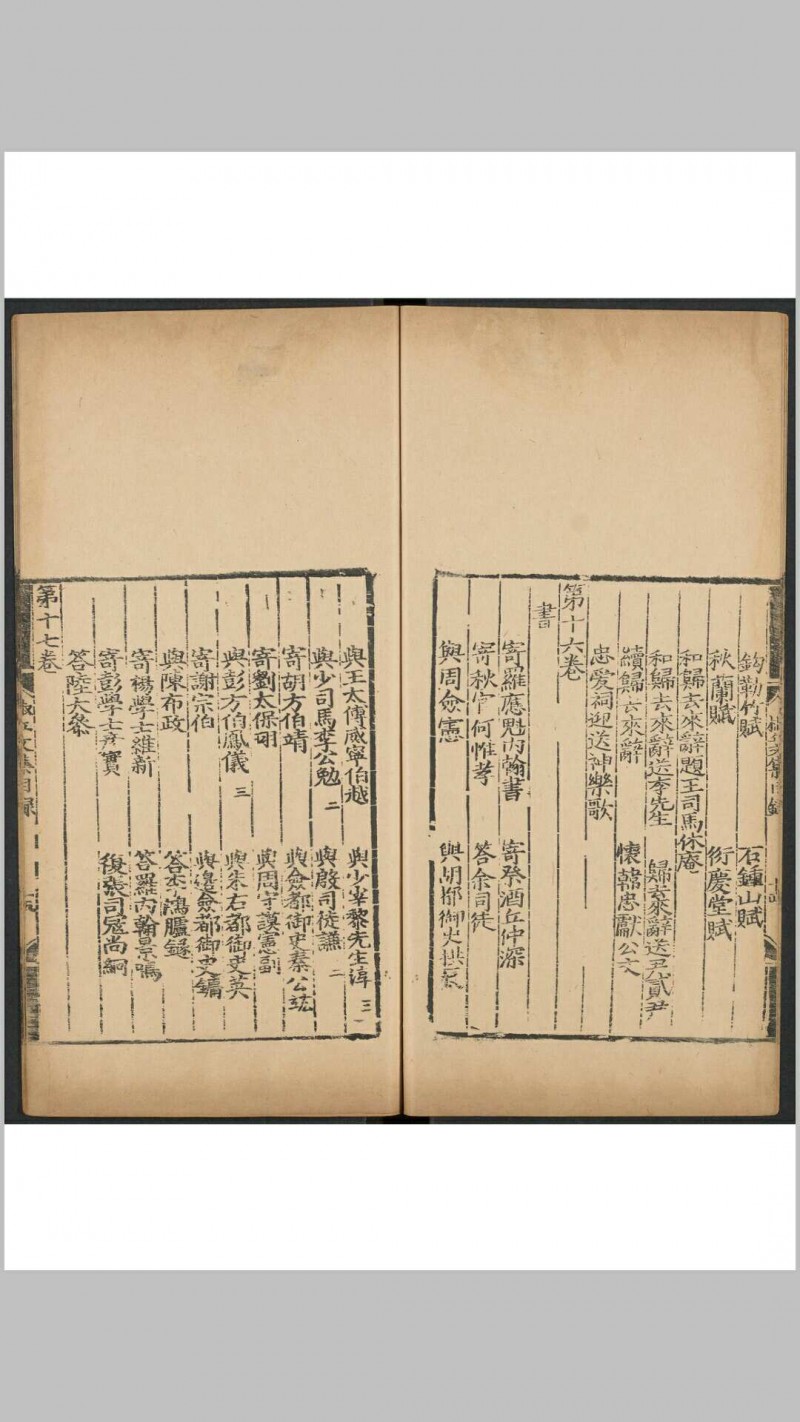 鈎勒竹賦 石鍾山賦
秋蘭賦 衍慶堂賦
和歸去來辭題王司馬休庵
和歸去來辭送李先生 歸去來辭送尹貳尹
續歸去來辭 懷韓忠獻公文
忠爱祠迎送神樂歌
第十六卷
書
寄羅應魁内翰書 寄祭酒丘仲深
寄秋官何惟孝 答余司徒
與周僉憲 與胡都御史拱辰
與王太傅威寧伯越 與少宰黎先生淳 三
與少司馬李公勉 二 與殷司徒謙 二
寄胡方伯靖 與僉都御史秦公竑
寄劉太保珝 與周宇謨憲副
與彭方伯鳳儀 三 與朱右都御史英
寄謝宗伯 與邊僉都御史鏞
與陳布政 答 鴻臚鐩
寄楊學士維新 答羅内翰景鳴
寄彭學士彦實 復張司寇尚絅
答陸大叅
第十七卷
文集目錄